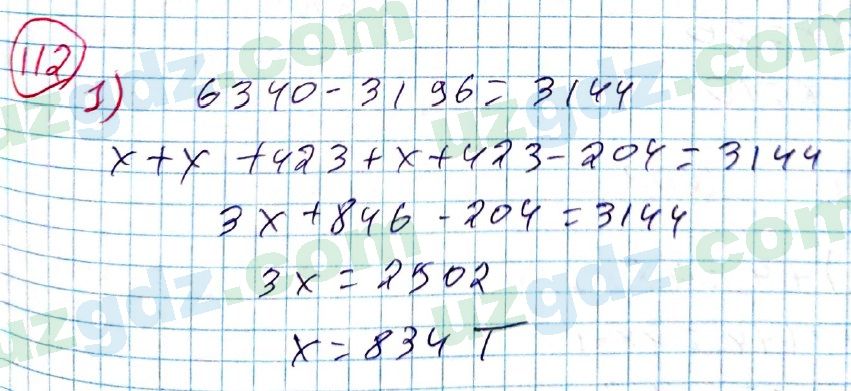 112
1) 6340-3196=3144
x+x+423+x+423-204=3144
3x+846-204=3144
3x=2502
x=834 T
uzgdz.com